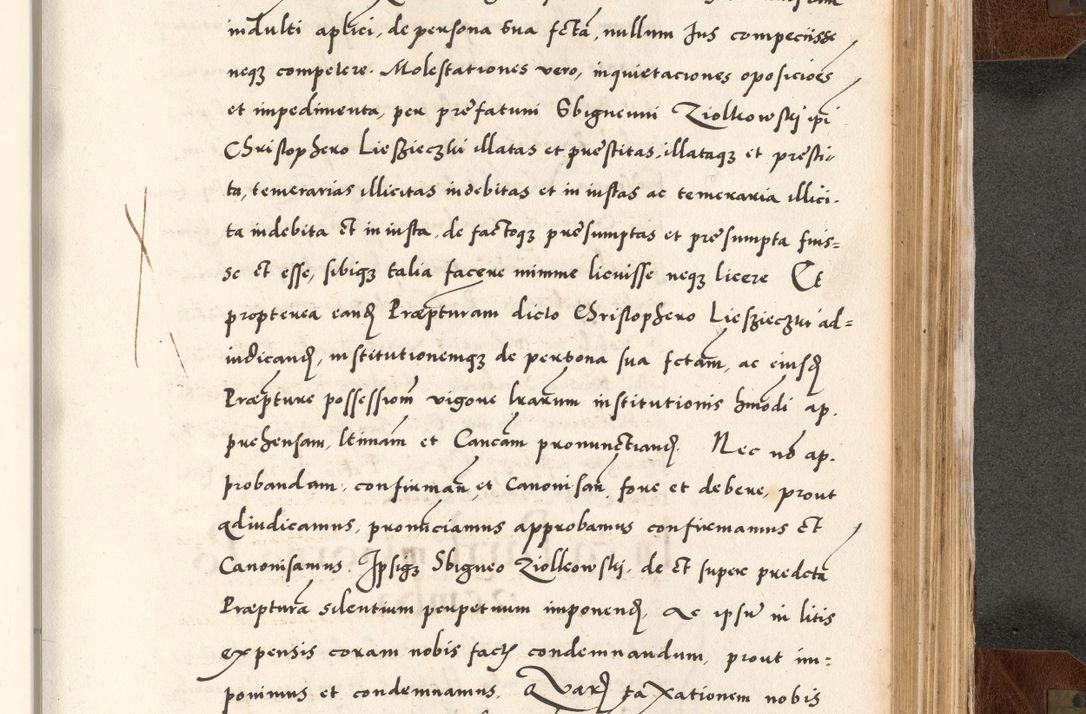 indulti aplici, de persona sua fctã, nullum Jus competiisse
neqȝ competere. Molestationes vero, inquietaciones oposiciões
et impedimenta, per prefatum Sbigneum Ziolkowskj ipi
Christophero Lieszieczki illatas et prestitas, illataqȝ et presti⸗
ta, temerarias illicitas indebitas et iniustas ac temeraria illici.
ta indebita et iniusta, de factoqȝ presumptas et presumpta fuis=
se et esse, sibiqȝ talia facere minime licuisse neqȝ licere Et
propterea eand Præpturam dicto Christophero Lieszieczki ad=
iudicand, institutionemqȝ de persona sua fctam, ac eiusd
Præpture possessiom vigore lrarum institutionis hmodi ap.
prehensam, ltimam et Cancam pronunctiand. Nec nõ ap.
probandam, confirmań et Canonisań, fore et debere, prout
adiudicamus, pronuciamus approbamus confirmamus et
Canonisamus. Ipsiqȝ Sbigneo Ziolkowskj, de et super predcta
Præptura silentium perpetuum imponend. Ac ipsũ in litis
expensis coram nobis factȝ condemnandum, prout im=
ponimus et condemnamus. Quarȝ taxationem nobis